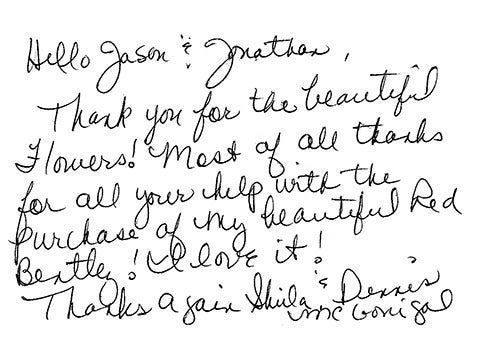 Hello Jason & Jonathan,
Thank you for the beautiful
Flowers! Most of all thanks
for all your help with the
purchase of my beautiful Red
Bentley! I love it!
Thanks Again Shila & Dennis
McGonigal